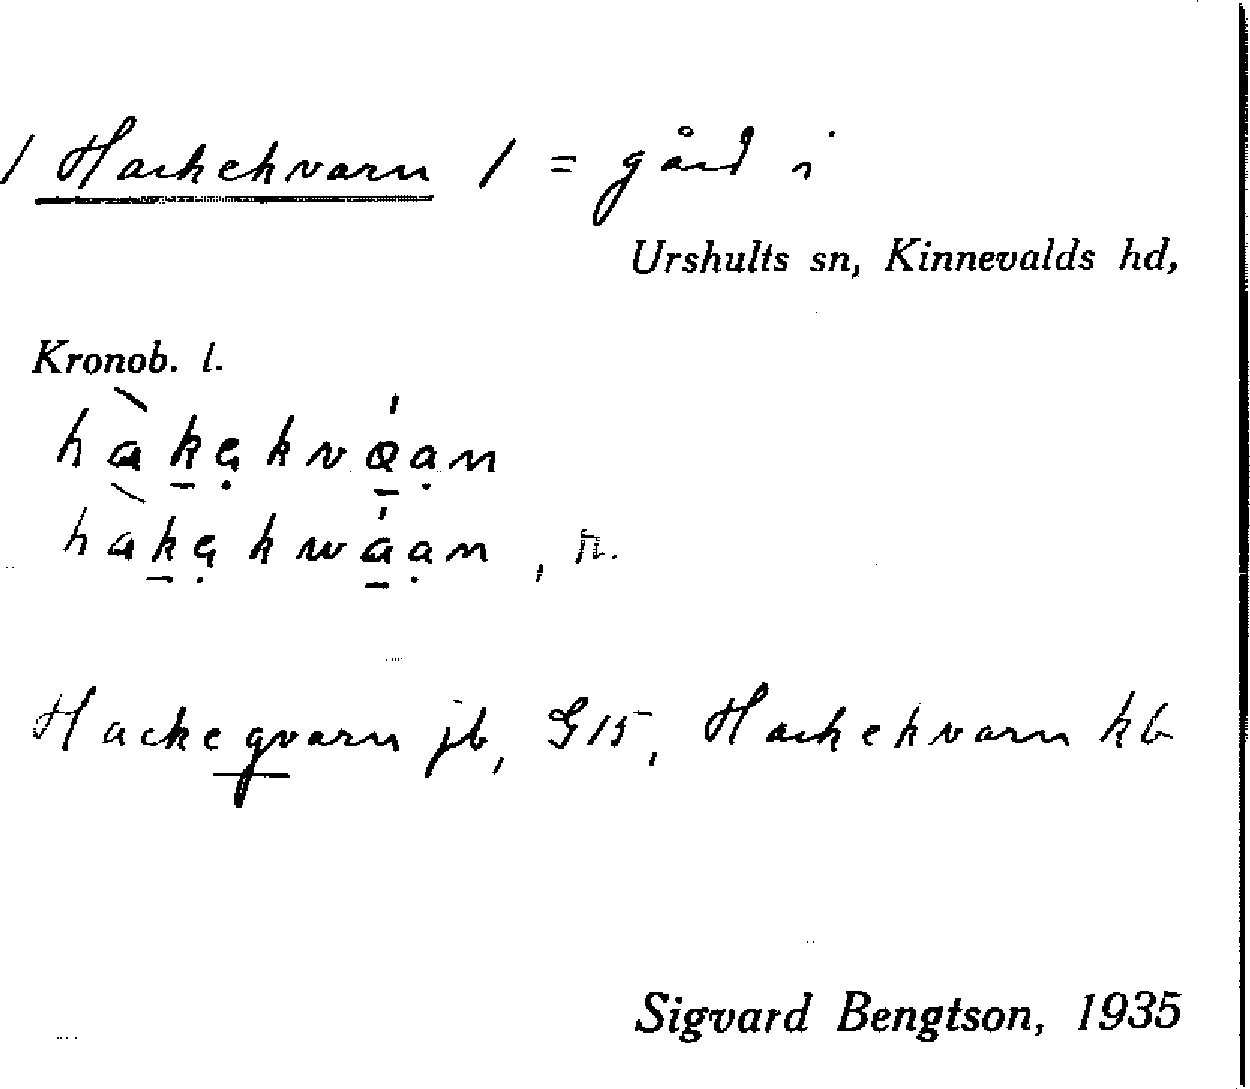 / Hackekvarn / = gård i
Urshults sn, Kinnevalds hd,
Kronob. l.
, n.
Hackeqvarn jb, G15, Hackekvarn kb
Sigvard Bengtson, 1935